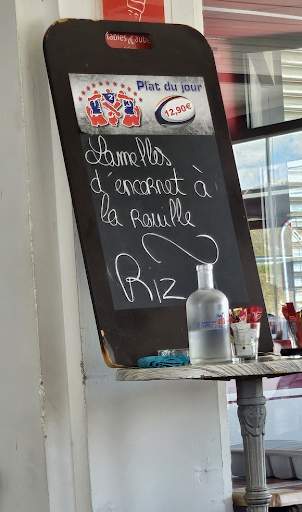 Tables & Auberges
Plat du jour
12,90€
Lamelles
d'encornet à
la Rouille
Riz